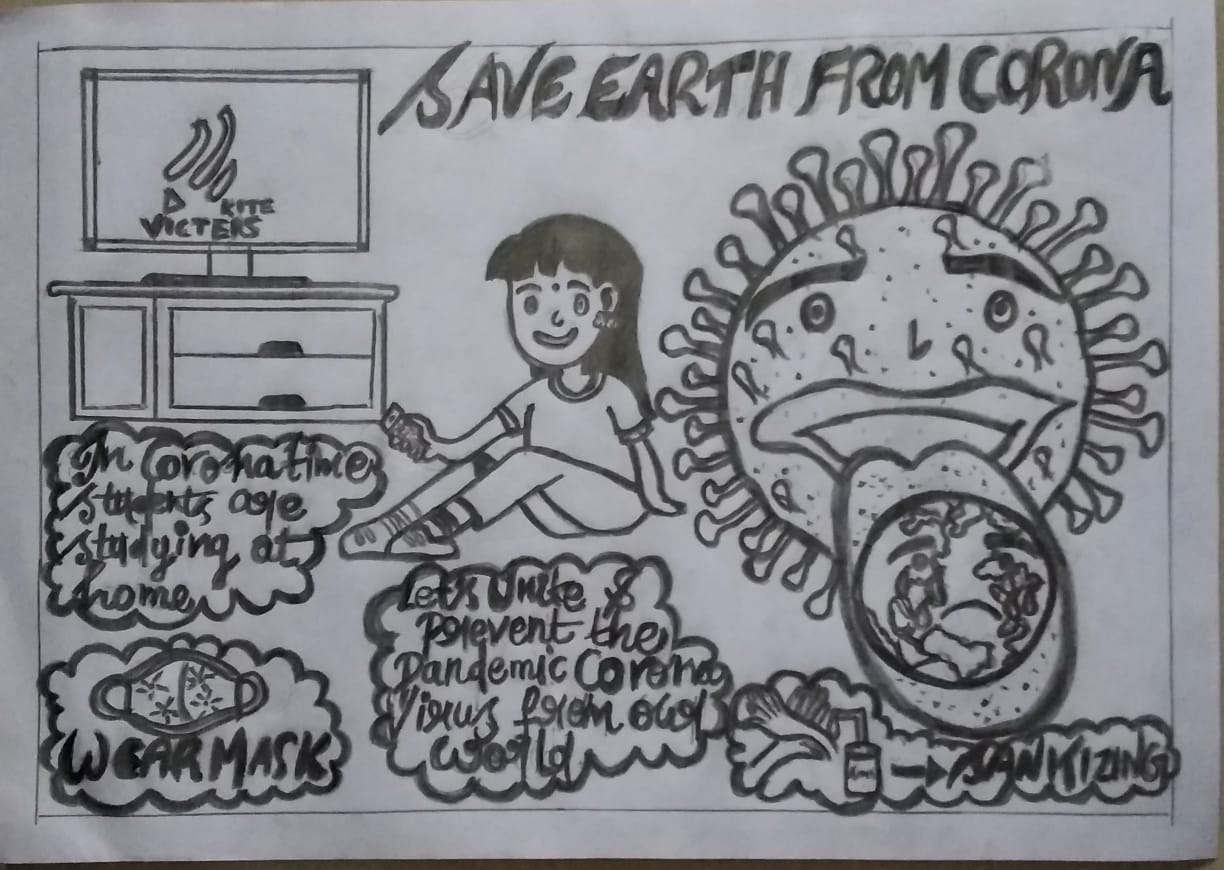 SAVE EARTH FROM CORONA
KITE
VICTERS
In Corona time
students are
studying at
home
Let's Unite &
prevent the
Pandemic Corona
Virus from our
world
WEAR MASK
SANITIZING